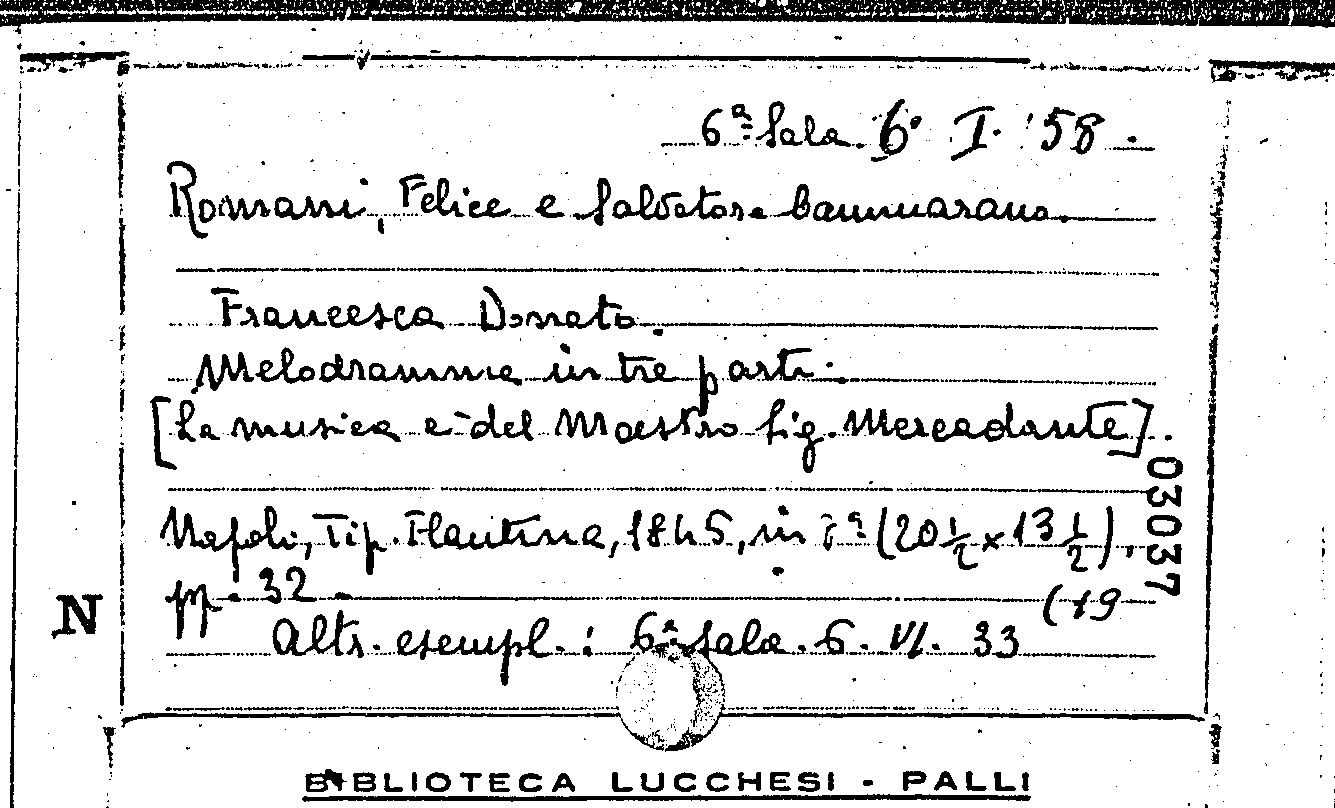 6ª Sala. 6. I. '58.
Romani, Felice e Salvatore Cammarano.
Francesca Donato.
Melodramma in tre parti.
[La musica è del Maestro Sig. Mercadante].
03037
Napoli, Tip. Flautina, 1845, in 8ª (20 1/2 x 13 1/2),
pp. 32.
(19
N
Altr. esempl.: 6ª Sala. 6. VI. 33
BIBLIOTECA LUCCHESI - PALLI